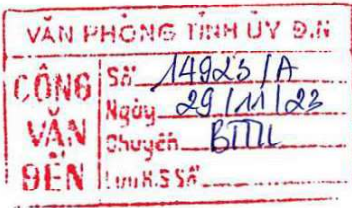 VĂN PHÒNG TỈNH ỦY Đ.N
CÔNG VĂN ĐẾN
Số 14923/A
Ngày 29/11/23
Chuyển
Lưu H.S Số